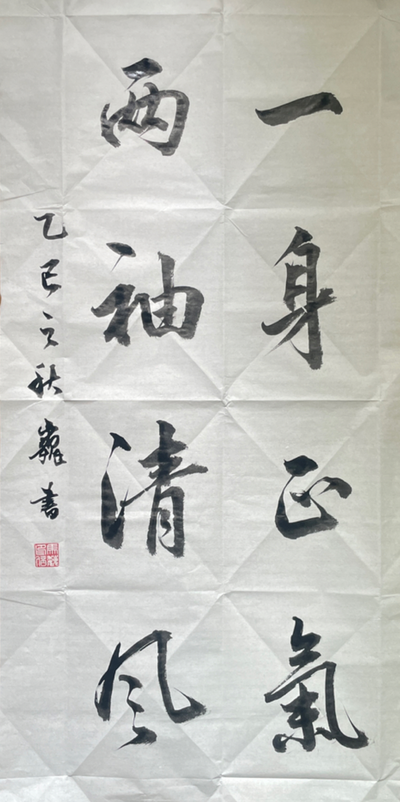 一身正氣
兩袖清風
乙巳立秋 書